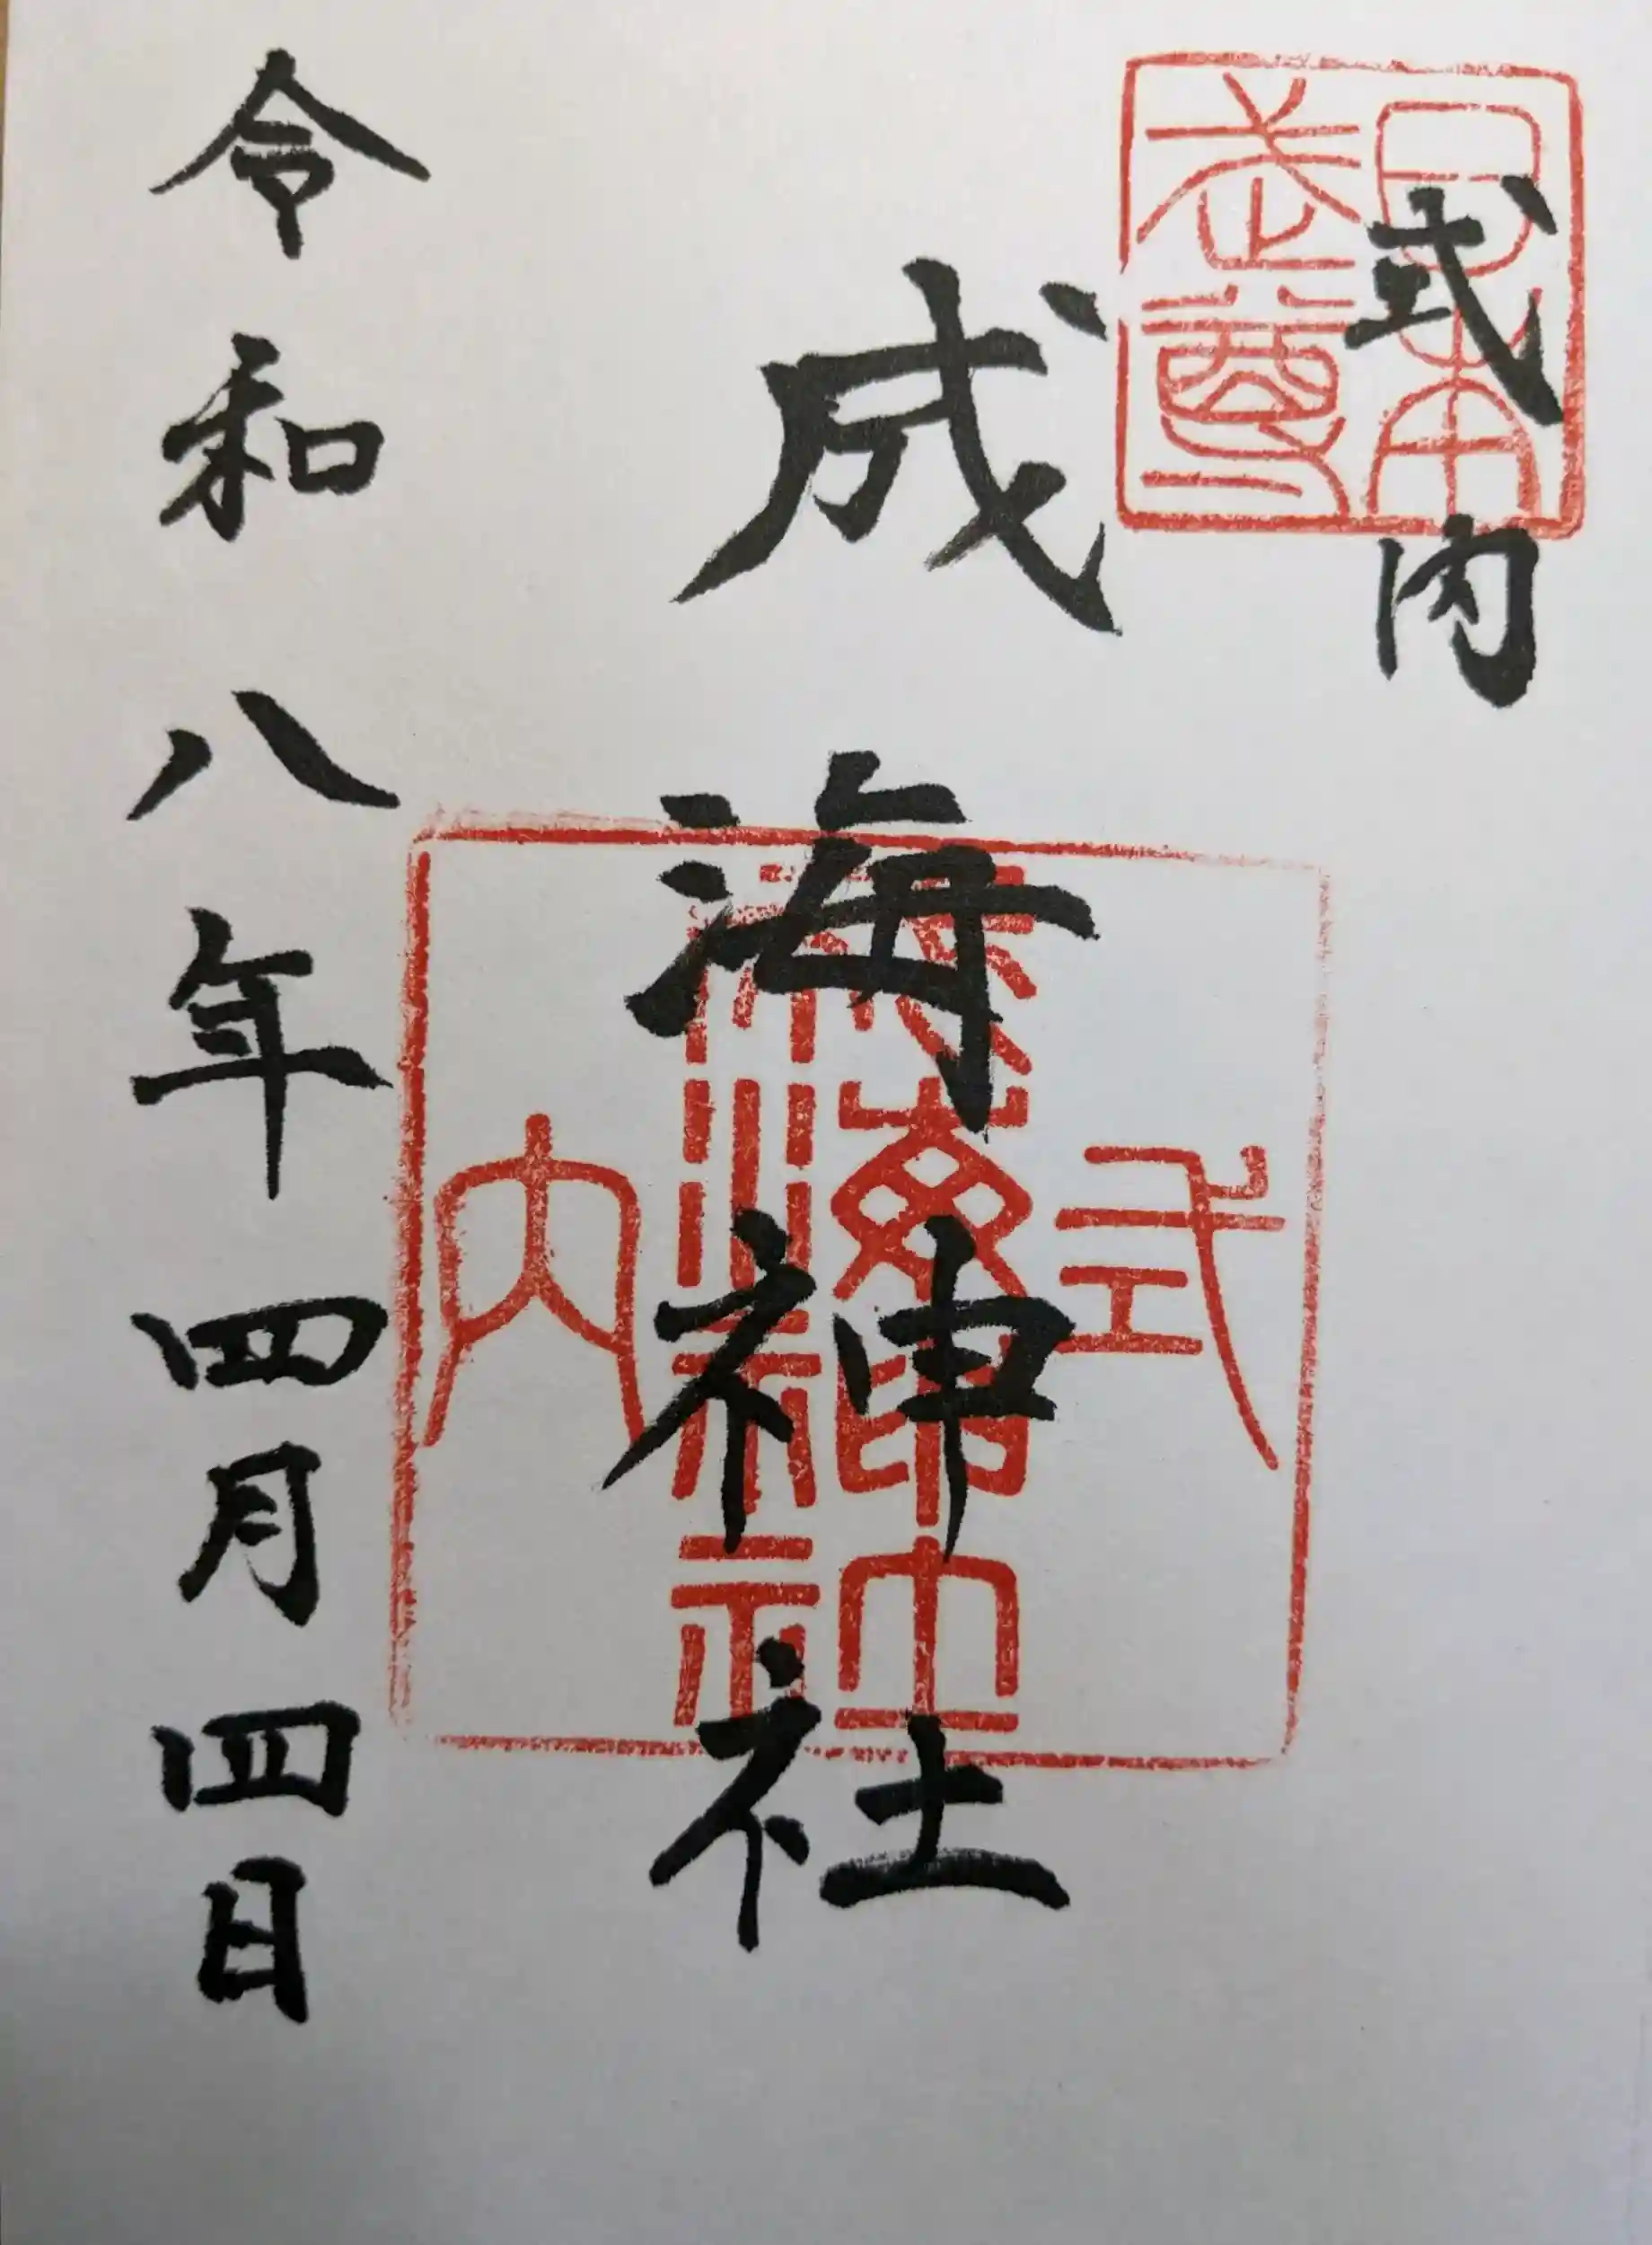 式内
日本
武尊
成海神社
式
成海神社
内
令和八年四月四日